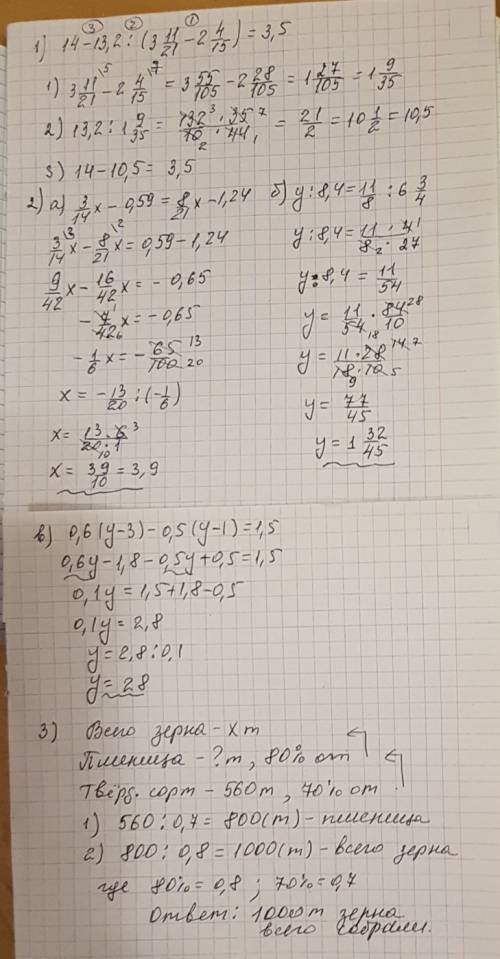 ③ ② ①
1) 14-13,2:(3 11/21-2 4/15)=3,5
1) 3 11/21\5-2 4/15\7=3 55/105-2 28/105=1 27/105=1 9/35
2) 13,2:1 9/35=132³·35⁷/10₂·44₁=21/2=10 1/2=10,5
3) 14-10,5=3,5
2) а) 3/14x-0,59=8/21x-1,24
3/14\3x-8/21\2x=0,59-1,24
9/42x-16/42x=-0,65
-7¹/42₆x=-0,65
-1/6x=-65/100 13/20
x=-13/20:(-1/6)
x=13·6³/20₁₀·1
x=39/10=3,9
б) y:8,4=11/8:6 3/4
y:8,4=11·4¹/8₂·27
y:8,4=11/54
y=11/54₁₈·84²⁸/10
y=11·28¹⁴ ⁷/18₉·10₅
y=77/45
y=1 32/45
в) 0,6(y-3)-0,5(y-1)=1,5
0,6y-1,8-0,5y+0,5=1,5
0,1y=1,5+1,8-0,5
0,1y=2,8
y=2,8:0,1
y=28
3) Всего зерна-x т
Пшеница-?т, 80% от
Твёрд. сорт-560т, 70% от
1) 560:0,7=800(т)-пшеница
2) 800:0,8=1000(т)-всего зерна
где 80%=0,8; 70%=0,7
Ответ: 1000т зерна
всего собрали.